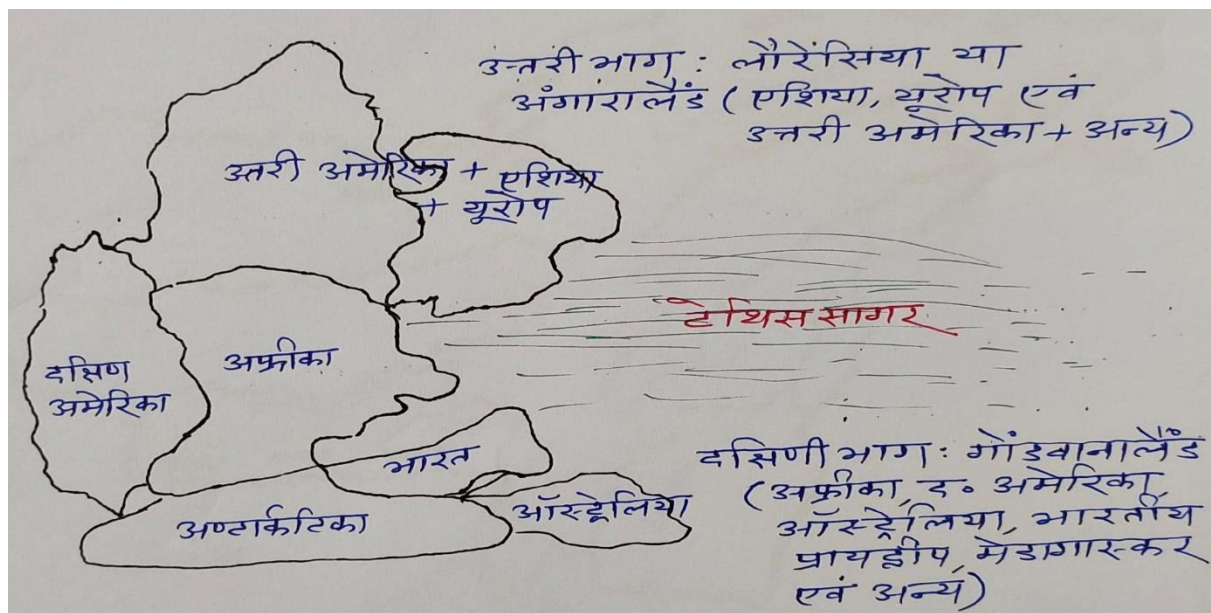 उत्तरी भाग : लौरेंसिया या
अंगारालैंड ( एशिया, यूरोप एवं
उत्तरी अमेरिका + अन्य)
उत्तरी अमेरिका + एशिया
+ यूरोप
टेथिस सागर
दक्षिण
अमेरिका
अफ्रीका
भारत
अण्टार्कटिका
ऑस्ट्रेलिया
दक्षिणी भाग : गोंडवानालैंड
(अफ्रीका, द० अमेरिका,
ऑस्ट्रेलिया, भारतीय
प्रायद्वीप, मेडागास्कर
एवं अन्य)